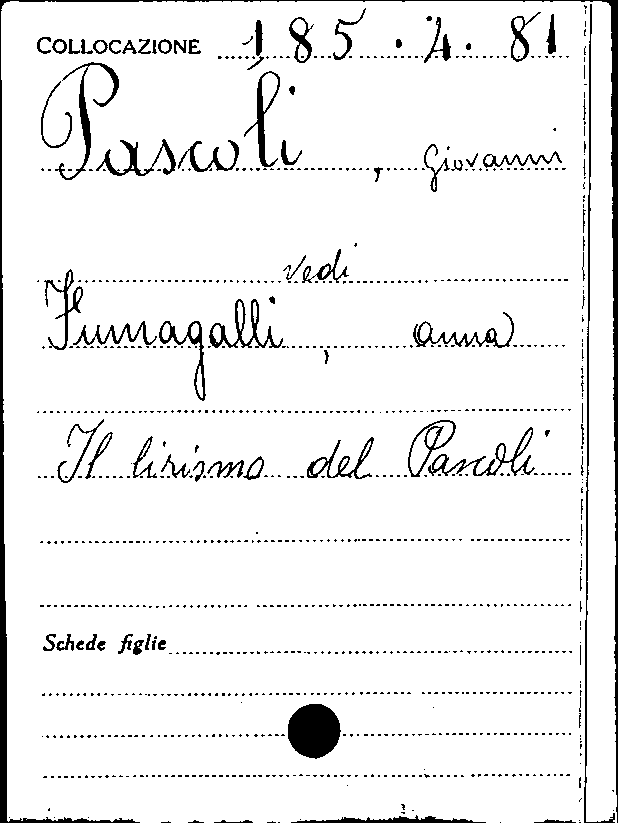 COLLOCAZIONE 185.4.81
Pascoli, Giovanni
vedi
Fumagalli, anna
Il lirismo del Pascoli
Schede figlie